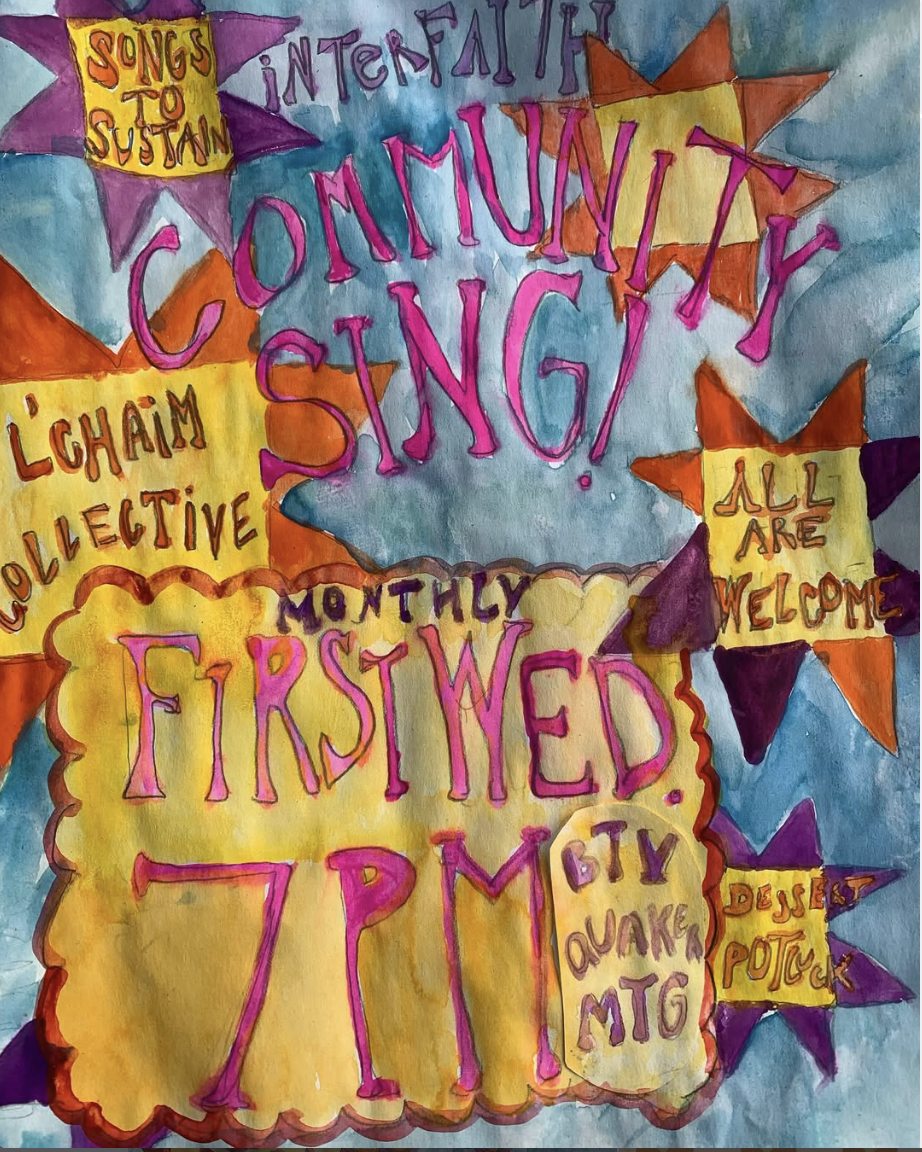 SONGS
TO
SUSTAIN
iNTeRFAITH
COMMUNITY
SING!
L'CHAiM
COLLECTiVE
ALL
ARE
WELCOME
MONTHLY
FiRST WED.
7PM
BTV
QUAKER
MTG
DESSERT
POTLUCK